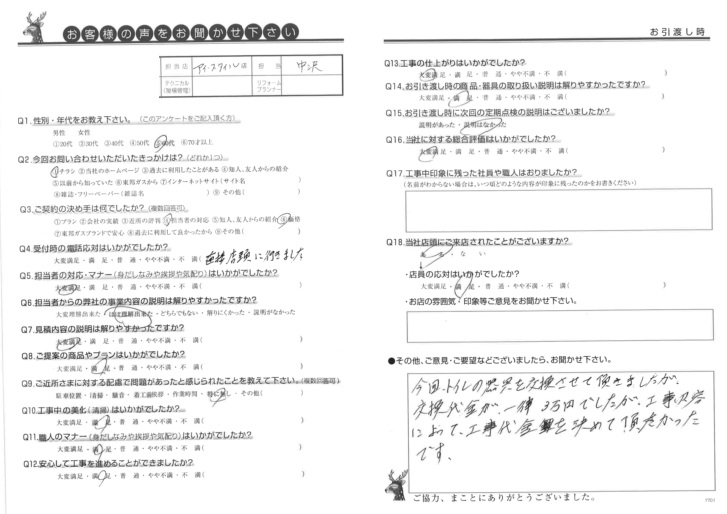 お客様の声をお聞かせ下さい
担当店 アイ・スタイル店 担当 中沢
テクニカル(現場管理) リフォームプランナー
Q1. 性別・年代をお教え下さい。(このアンケートをご記入頂く方)
男性 女性
①20代 ②30代 ③40代 ④50代 ⑤60代 ⑥70才以上
Q2. 今回お問い合わせいただいたきっかけは?(どれか1つ)
①チラシ ②当社のホームページ ③過去に利用したことがある ④知人、友人からの紹介
⑤以前から知っていた ⑥東邦ガスから ⑦インターネットサイト(サイト名 )
⑧雑誌・フリーペーパー(雑誌名 ) ⑨その他( )
Q3. ご契約の決め手は何でしたか?(複数回答可)
①プラン ②会社の実績 ③近所の評判 ④担当者の対応 ⑤知人、友人からの紹介 ⑥価格
⑦東邦ガスブランドで安心 ⑧過去に利用して良かったから ⑨その他( )
Q4. 受付時の電話応対はいかがでしたか?
大変満足・満 足・普 通・やや不満・不 満( 直接店頭に行きました
Q5. 担当者の対応・マナー(身だしなみや挨拶や気配り)はいかがでしたか?
大変満足・満 足・普 通・やや不満・不 満( )
Q6. 担当者からの弊社の事業内容の説明は解りやすかったですか?
大変理解出来た・ほぼ理解出来た・どちらでもない・解りにくかった・説明がなかった
Q7. 見積内容の説明は解りやすかったですか?
大変満足・満 足・普 通・やや不満・不 満( )
Q8. ご提案の商品やプランはいかがでしたか?
大変満足・満 足・普 通・やや不満・不 満( )
Q9. ご近所さまに対する配慮で問題があったと感じられたことを教えて下さい。(複数回答可)
駐車位置・清掃・騒音・着工前挨拶・作業時間・特に無し・その他( )
Q10. 工事中の美化(清掃)はいかがでしたか?
大変満足・満 足・普 通・やや不満・不 満( )
Q11. 職人のマナー(身だしなみや挨拶や気配り)はいかがでしたか?
大変満足・満 足・普 通・やや不満・不 満( )
Q12. 安心して工事を進めることができましたか?
大変満足・満 足・普 通・やや不満・不 満( )
お引渡し時
Q13. 工事の仕上がりはいかがでしたか?
大変満足・満 足・普 通・やや不満・不 満( )
Q14. お引き渡し時の商品・器具の取り扱い説明は解りやすかったですか?
大変満足・満 足・普 通・やや不満・不 満( )
Q15. お引き渡し時に次回の定期点検の説明はございましたか?
説明があった・説明はなかった
Q16. 当社に対する総合評価はいかがでしたか?
大変満足・満 足・普 通・やや不満・不 満( )
Q17. 工事中印象に残った社員や職人はおりましたか?
(名前がわからない場合は、いつ頃どのような内容が印象に残ったのかをお書きください)
Q18. 当社店頭にご来店されたことがございますか?
な い
・店員の応対はいかがでしたか?
大変満足・満 足・普 通・やや不満・不 満( )
・お店の雰囲気・印象等ご意見をお聞かせ下さい。
●その他、ご意見・ご要望などございましたら、お聞かせ下さい。
今回、トイレの器具を交換させて頂きましたが、
交換代金が、一律 3万円でしたが、工事内容
によって、工事代金を決めて頂きたかった
です。
ご協力、まことにありがとうございました。